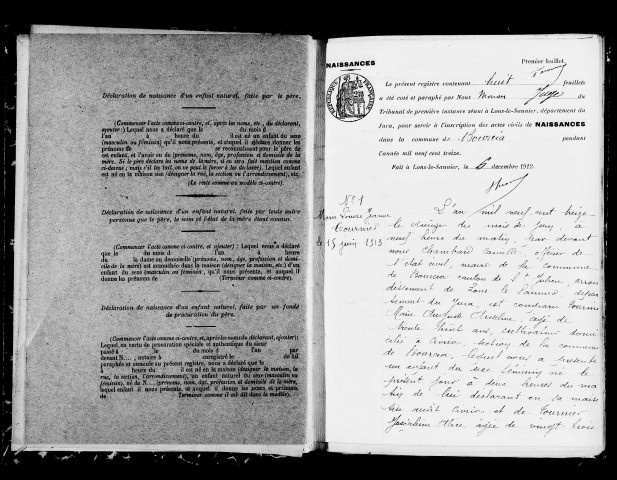 Déclaration de naissance d'un enfant naturel, faite par le père.
(Commencer l'acte comme ci-contre, et, après les noms, etc., du déclarant,
ajouter :) Lequel nous a déclaré que le du mois d
l'an à heure du il est né un enfant du sexe
(masculin ou féminin), qu'il nous présente, et auquel il a déclaré donner les
prénoms de se reconnaissant pour le père de
cet enfant, et l'avoir eu de (prénoms, nom, âge, profession et domicile de la
mère. Si le père déclare les noms de la mère, il en sera fait mention comme
ci-dessus ; mais s'il les tait, on ne peut le forcer à les déclarer). Lequel enfant
est né en la maison sise (désigner la rue, la section ou l'arrondissement), etc.
(Le reste comme au modèle ci-contre).
Déclaration de naissance d'un enfant naturel, faite par toute autre
personne que le père, le nom et l'état de la mère étant connus.
(Commencer l'acte comme ci-contre, et ajouter) : Lequel nous a déclaré
que le du mois d l'an à heure du
la dame ou demoiselle (prénoms, nom, âge, profession et domi-
cile de la mère) est accouchée dans la maison (désigner la maison, etc.) d'un
enfant du sexe (masculin ou féminin), qu'il nous présente, et auquel il donne
les prénoms de (Terminer comme ci-contre).
Déclaration de naissance d'un enfant naturel, faite par un fondé
de procuration du père.
(Commencer l'acte comme ci-contre, et, après les noms du déclarant, ajouter):
Lequel, en vertu de procuration spéciale et authentique du sieur
passé à le du mois d l'an par
devant N...., notaire à enregistré le dudit
paraphée et annexée au présent registre, nous a déclaré que le
heure du il est né en la maison (désigner la maison, la
rue, la section, l'arrondissement), un enfant naturel du sexe (masculin ou
féminin), né de N.... (prénoms, nom, âge, profession et domicile de la mère,
lequel enfant il nous présente, et auquel il donne les noms et prénoms
de Terminer comme il est dit dans le modèle).
NAISSANCES
Premier feuillet.
RÉPUBLIQUE FRANÇAISE
Le présent registre contenant huit feuillets
a été coté et paraphé par Nous Juge du
Tribunal de première instance séant à Lons-le-Saunier, département du
Jura, pour servir à l'inscription des actes civils de NAISSANCES
dans la commune de Bourcia pendant
l'année mil neuf cent treize.
Fait à Lons-le-Saunier, le 6 décembre 1912.
N° 1
Marie Louise Jeanne
Tournier
le 15 juin 1913
L'an mil neuf cent treize
le quinze du mois de Juin, à
neuf heures du matin, par devant
nous Chambard Camille, officier de
l'état civil, maire de la commune
de Bourcia canton de St Julien, arron
dissement de Lons le Saunier dépar
tement du Jura, est comparu Tournier
Marie Auguste Anselme âgé de
trente huit ans, cultivateur domi
cilié à Civria, section de la commune
de Bourcia, lequel nous a présenté
un enfant du sexe féminin née le
présent jour à deux heures du ma
tin de lui déclarant en sa maison
sise audit Civria et de Tournier
Joséphine Alice âgée de vingt trois